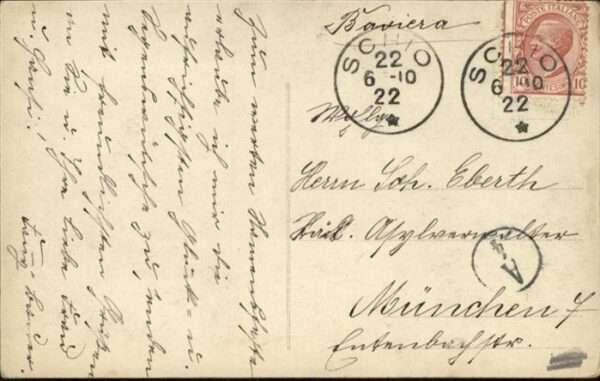 Zum werten Namensfeste
erlaube ich mir die
aufrichtigsten Glück- u.
Segenswünsche zu senden
mit freundlichsten Grüßen
an Sie u. Ihre liebe Frau
u.
Baviera
SCHIO
22
6 -10
22
SCHIO
22
6 10
22
POSTE ITALIANE
10 10
Herrn Joh. Eberth
Asylverwalter
A
München 7
Entenbachstr.